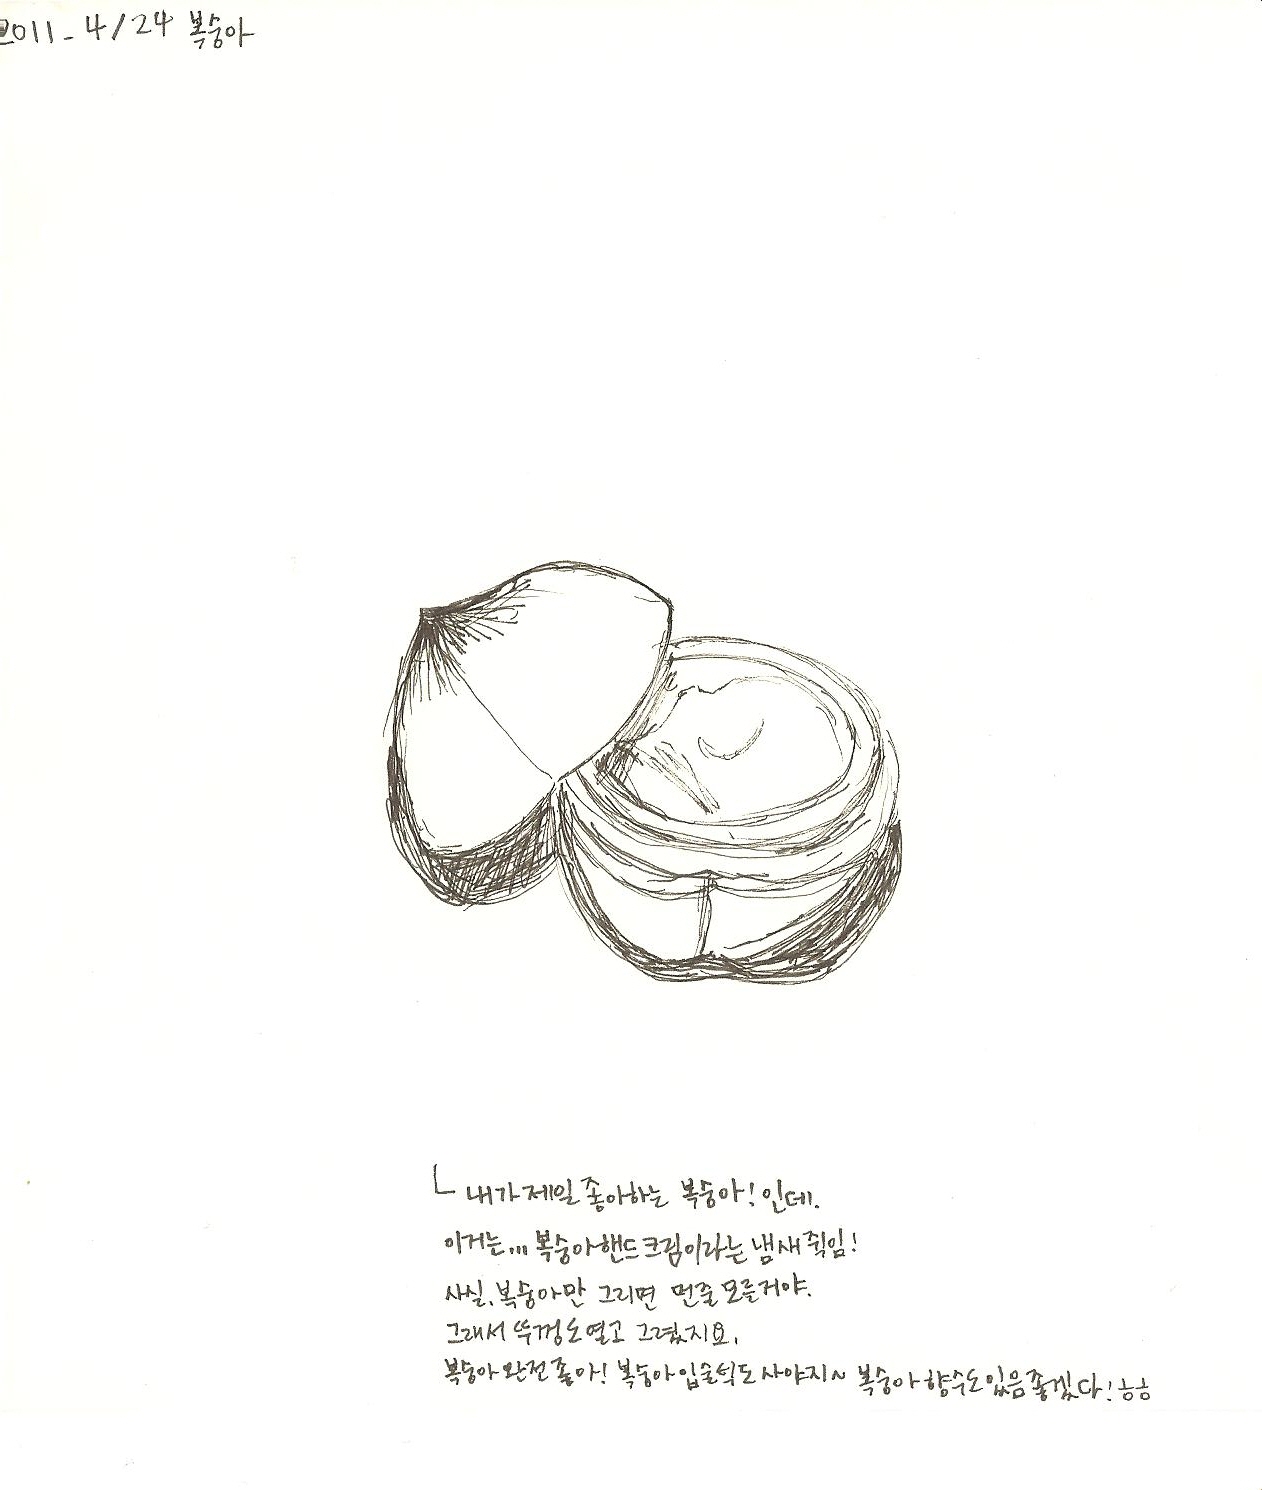 2011-4/24 복숭아
내가 제일 좋아하는 복숭아! 인데.
이거는... 복숭아핸드크림이라는 냄새 쥑임!
사실, 복숭아만 그리면 먼줄 모를거야.
그래서 뚜껑도 열고 그렸지요.
복숭아 완전 좋아! 복숭아 입술식도 사야지~ 복숭아 향수도 있음 좋겠다! ㅎㅎ